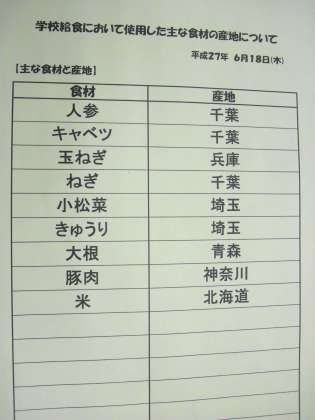 学校給食において使用した主な食材の産地について
平成27年 6月18日(木)
【主な食材と産地】
食材 産地
人参 千葉
キャベツ 千葉
玉ねぎ 兵庫
ねぎ 千葉
小松菜 埼玉
きゅうり 埼玉
大根 青森
豚肉 神奈川
米 北海道